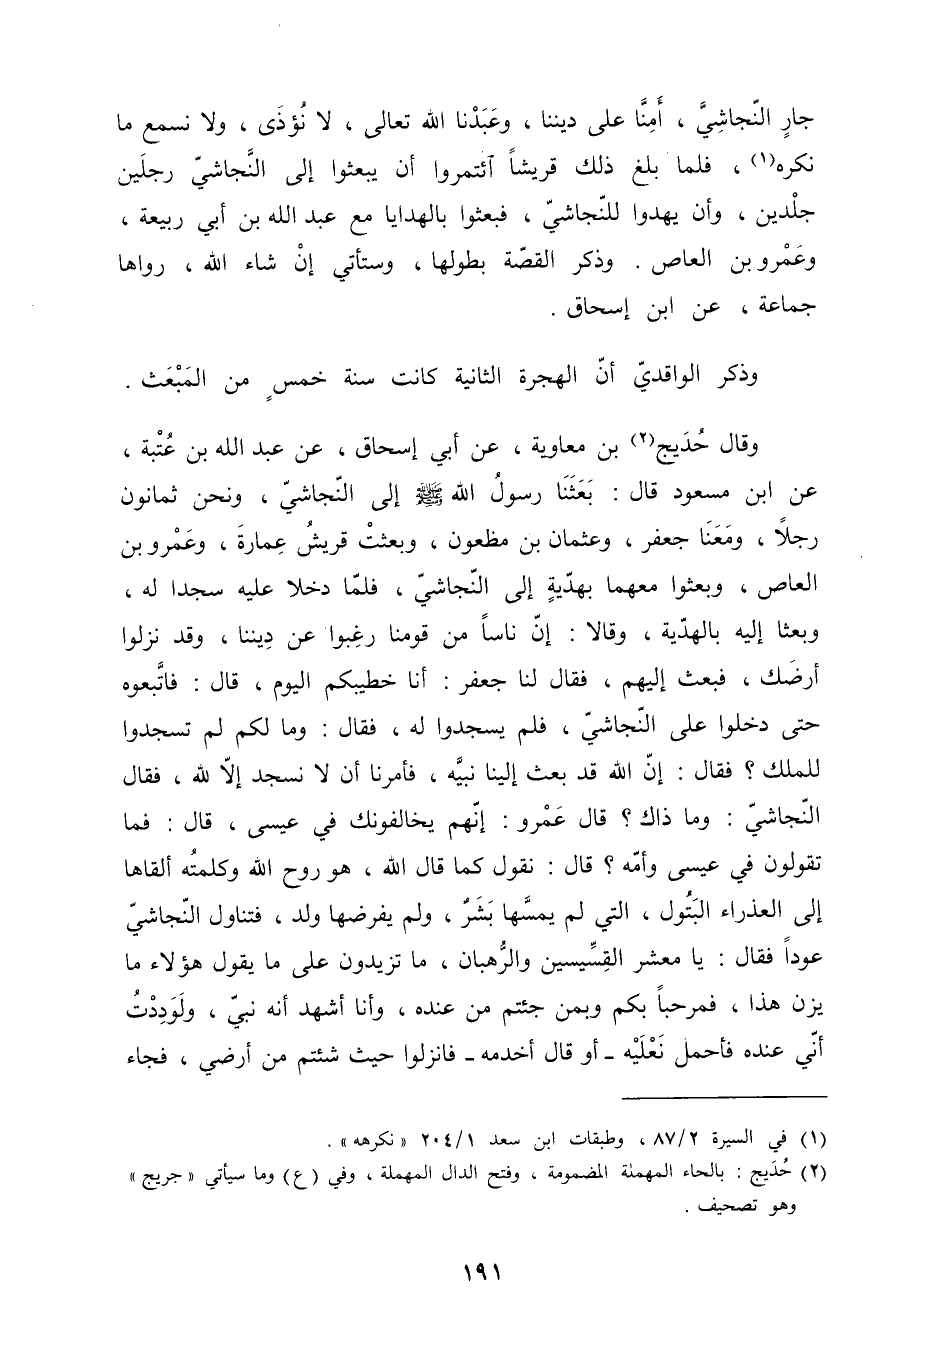 جارٍ النّجاشِيَّ ، أَمِنَّا على ديننا ، وعَبَدْنا الله تعالى ، لا نُؤذَى ، ولا نسمع ما
نكره(١) ، فلما بلغ ذلك قريشاً آئتمروا أن يبعثوا إلى النَّجاشيّ رجلَين
جلْدين ، وأن يهدوا للنّجاشيّ ، فبعثوا بالهدايا مع عبد الله بن أبي ربيعة ،
وعَمْرو بن العاص . وذكر القصّة بطولها ، وستأتي إنْ شاء الله ، رواها
جماعة ، عن ابن إسحاق .
وذكر الواقديّ أنّ الهجرة الثانية كانت سنة خمسٍ من المَبْعَث .
وقال حُدَيج(٢) بن معاوية ، عن أبي إسحاق ، عن عبد الله بن عُتْبة ،
عن ابن مسعود قال : بَعَثَنَا رسولُ الله ﷺ إلى النّجاشيّ ، ونحن ثمانون
رجلاً ، ومَعَنَا جعفر ، وعثمان بن مظعون ، وبعثتْ قريشُ عِمارةَ ، وعَمْرو بن
العاص ، وبعثوا معهما بهدّيةٍ إلى النّجاشيّ ، فلمّا دخلا عليه سجدا له ،
وبعثا إليه بالهدّية ، وقالا : إنّ ناساً من قومنا رغِبوا عن دِيننا ، وقد نزلوا
أرضَك ، فبعث إليهم ، فقال لنا جعفر : أنا خطيبكم اليوم ، قال : فاتَّبعوه
حتى دخلوا على النّجاشيّ ، فلم يسجدوا له ، فقال : وما لكم لم تسجدوا
للملك ؟ فقال : إنّ الله قد بعث إلينا نبيَّه ، فأمرنا أن لا نسجد إلاّ لله ، فقال
النّجاشيّ : وما ذاك ؟ قال عَمْرو : إنّهم يخالفونك في عيسى ، قال : فما
تقولون في عيسى وأمّه ؟ قال : نقول كما قال الله ، هو روح الله وكلمتُه ألقاها
إلى العذراء البَتُول ، التي لم يمسَّها بَشَرٌ ، ولم يفرضها ولد ، فتناول النّجاشيّ
عوداً فقال : يا معشر القِسِّيسين والرُّهبان ، ما تزيدون على ما يقول هؤلاء ما
يزن هذا ، فمرحباً بكم وبمن جئتم من عنده ، وأنا أشهد أنه نبيّ ، ولَوَدِدْتُ
أنّي عنده فأحمل نَعْلَيْه ـ أو قال أخدمه ـ فانزلوا حيث شئتم من أرضي ، فجاء
(١) في السيرة ٨٧/٢ ، وطبقات ابن سعد ٢٠٤/١ « نكرهه » .
(٢) حُدَيج : بالحاء المهملة المضمومة ، وفتح الدال المهملة ، وفي (ع) وما سيأتي « جريج »
وهو تصحيف .
١٩١